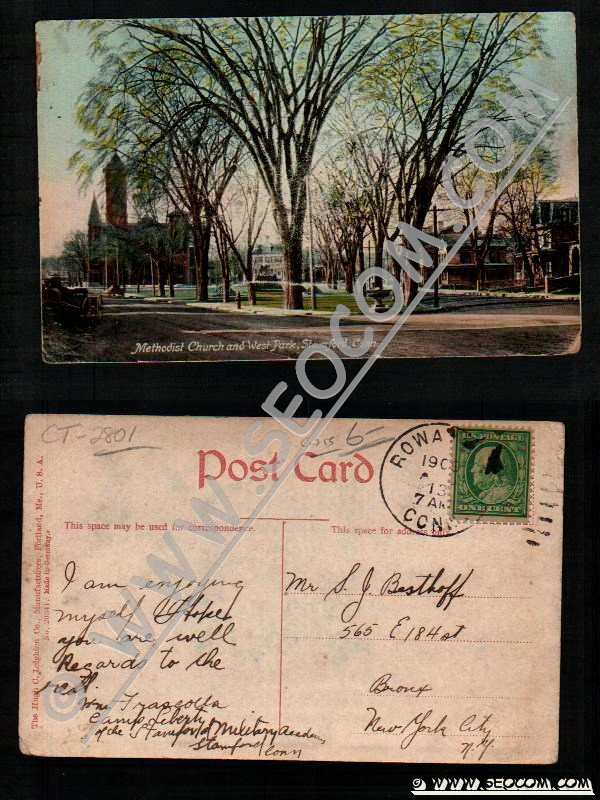 Methodist Church and West Park, Stamford, Conn.
© WWW.SEOCOM.COM
CT-2801
6-
Post Card
This space may be used for correspondence.
This space for address only.
The Hugh C. Leighton Co., Manufacturers, Portland, Me., U. S. A.
Made in Germany.
ROWAY
190
13
7 AM
CONN
U.S. POSTAGE
ONE CENT
I am enjoying
myself I Hope
you are well
Regards to the
rest.
Wm.
Camp Liberty
of the Stamford Military Academy
Stamford
Conn
Mr S. J. Besthoff
565 E 184 st
Bronx
New York City
N.Y.
© WWW.SEOCOM.COM